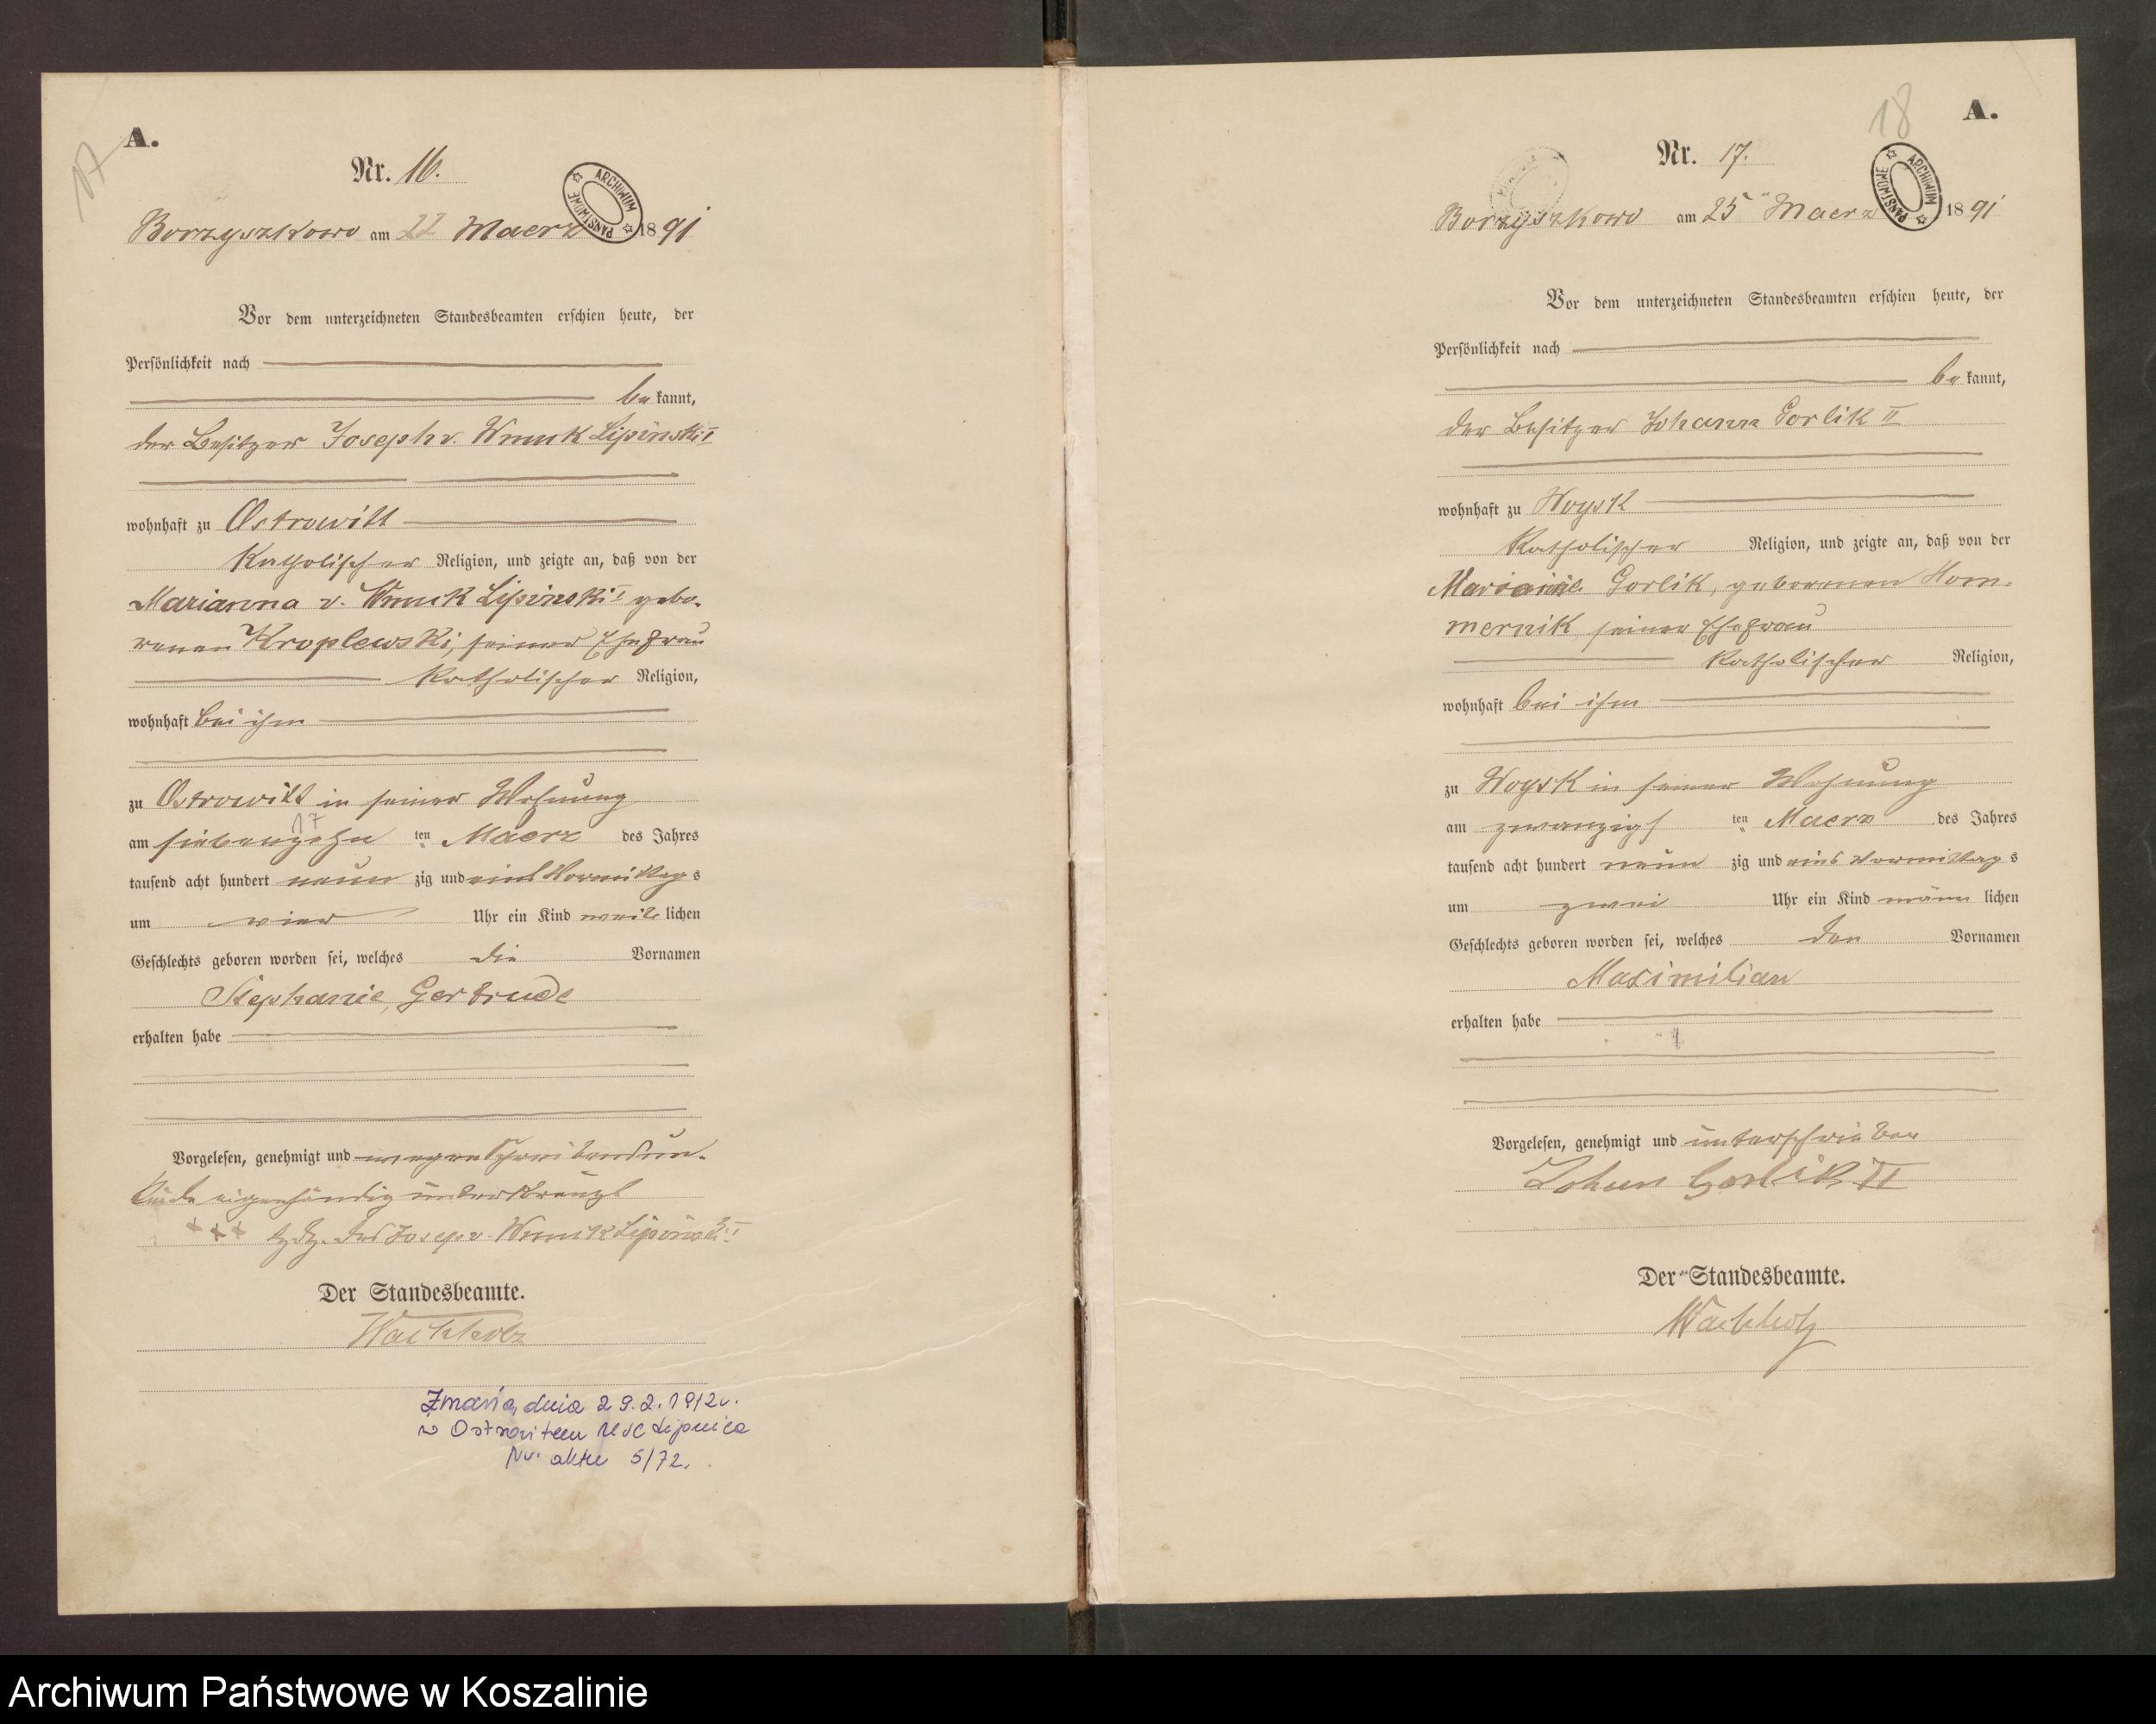 17
A.
Nr. 16.
ARCHIWUM PAŃSTWOWE
Borzyszkowo am 22 Maerz 1891
Vor dem unterzeichneten Standesbeamten erschien heute, der
Persönlichkeit nach
be kannt,
der Besitzer Joseph v. Wnuk Lipinski I
wohnhaft zu Ostrowitt
Katholischer Religion, und zeigte an, daß von der
Marianna v. Wnuk Lipinski I gebo-
renen Kroplewski, seiner Ehefrau
Katholischer Religion,
wohnhaft bei ihm
zu Ostrowitt in seiner Wohnung
17
am siebenzehn ten Maerz des Jahres
tausend acht hundert neun zig und eins Vormittag s
um vier Uhr ein Kind weib lichen
Geschlechts geboren worden sei, welches die Vornamen
Stephanie, Gertrude
erhalten habe
Vorgelesen, genehmigt und wegen Schreibensun-
kunde eigenhändig unterkreuzt
+++ Hdz. des Josep v. Wnuk Lipinski I
Der Standesbeamte.
Wachholz
Zmarła dnia 29.2.1912r.
w Ostrowitem USC Lipnica
Nr. aktu 5/72.
18
A.
Nr. 17.
ARCHIWUM PAŃSTWOWE
Borzyszkowo am 25 Maerz 1891
Vor dem unterzeichneten Standesbeamten erschien heute, der
Persönlichkeit nach
be kannt,
der Besitzer Johann Gorlik II
wohnhaft zu Woysk
Katholischer Religion, und zeigte an, daß von der
Marianne Gorlik, geborenen Hom-
mernik seiner Ehefrau
Katholischer Religion,
wohnhaft bei ihm
zu Woysk in seiner Wohnung
am zwanzigs ten Maerz des Jahres
tausend acht hundert neun zig und eins Vormittag s
um zwei Uhr ein Kind männ lichen
Geschlechts geboren worden sei, welches den Vornamen
Maximilian
erhalten habe
Vorgelesen, genehmigt und unterschrieben
Johan Gorlik II
Der Standesbeamte.
Wachholz
Archiwum Państwowe w Koszalinie